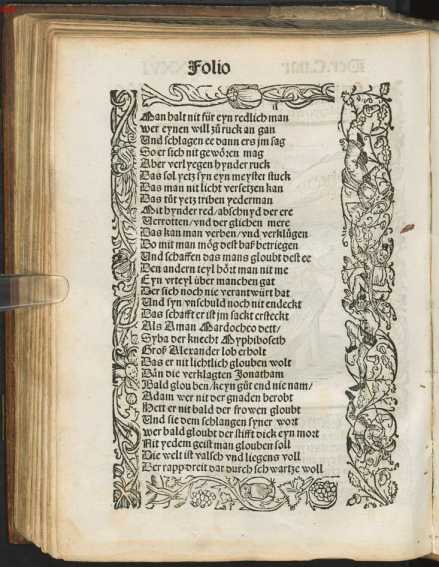 Folio
Man halt nit für eyn redlich man
wer eynen will zů ruck an gan
Und schlagen ee dann ers jm sag
So er sich nit gewören mag
Aber verlyegen hynder ruck
Das sol yetz syn eyn meyster stuck
Das man nit licht versetzen kan
Das tůt yetz triben yederman
Mit hynder red/abschnyd der ere
Verrotten/vnd der glichen mere
Das kan man verben/vnd verklůgen
Do mit man mög dest baß betriegen
Und schaffen das mans gloubt dest ee
Den andern teyl hört man nit me
Eyn vrteyl über manchen gat
Der sich noch nie verantwürt hat
Und syn vnschuld noch nit endeckt
Das schafft er ist jm sackt ersteckt
Als Aman Mardocheo dett/
Syba der knecht Myphiboseth
Groß Alexander lob erholt
Das er nit lichtlich glouben wolt
Dān die verklagten Jonatham
Bald glouben/keyn gůt end nie nam/
Adam wer nit der gnaden berobt
Hett er nit bald der frowen gloubt
Und sie dem schlangen syner wort
wer bald gloubt der stifft dick eyn mort
Nit yedem geist man glouben soll
Die welt ist valsch vnd liegens voll
Der rapp dreit dar durch schwartze woll